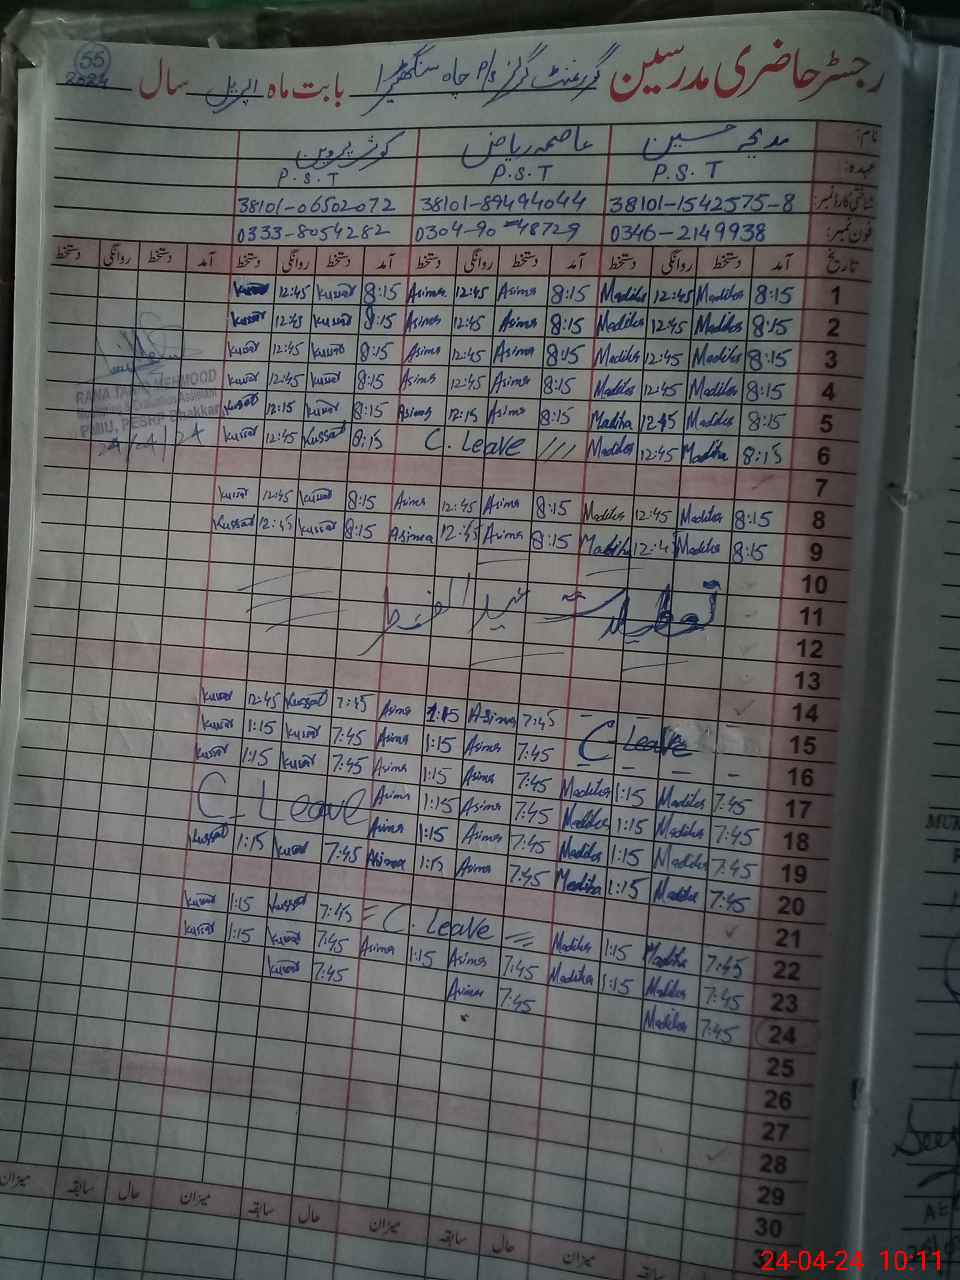 55
2024
رجسٹر حاضری مدرسین گورنمنٹ گرلز P/S چاہ سنگھیڑا بابت ماہ اپریل سال
نام: مدیحہ حسین عاصمہ ریاض کوثر پروین
عہدہ: P.S.T P.S.T P.S.T
شناختی کارڈ نمبر: 38101-1542575-8 38101-89494044 38101-06502072
فون نمبر: 0346-2149938 0304-90-48729 0333-8054282
تاریخ آمد دستخط روانگی دستخط آمد دستخط روانگی دستخط آمد دستخط روانگی دستخط آمد دستخط روانگی دستخط
1 8:15 Madiha 12:45 Madiha 8:15 Asima 12:45 Asima 8:15 Kusar 12:45 Kusar
2 8:15 Madiha 12:45 Madiha 8:15 Asima 12:45 Asima 8:15 Kusar 12:45 Kusar
3 8:15 Madiha 12:45 Madiha 8:15 Asima 12:45 Asima 8:15 Kusar 12:45 Kusar
4 8:15 Madiha 12:45 Madiha 8:15 Asima 12:45 Asima 8:15 Kusar 12:45 Kusar
5 8:15 Madiha 12:45 Madiha 8:15 Asima 12:15 Asima 8:15 Kusar 12:15 Kussat
6 8:15 Madiha 12:45 Madiha C. Leave 8:15 Kussat 12:45 Kusar
7
8 8:15 Madiha 12:45 Madiha 8:15 Asima 12:45 Asima 8:15 Kusar 12:45 Kusar
9 8:15 Madiha 12:4 Madiha 8:15 Asima 12:45 Asima 8:15 Kusar 12:45 Kussat
10
11 تعطیلات عید الفطر
12
13
14
15 C Leave 7:45 Asima 1:15 Asima 7:45 Kussat 12:45 Kusar
16 7:45 Asima 1:15 Asima 7:45 Kusar 1:15 Kusar
17 7:45 Madiha 1:15 Madiha 7:45 Asima 1:15 Asima 7:45 Kusar 1:15 Kusar
18 7:45 Madiha 1:15 Madiha 7:45 Asima 1:15 Asima C. Leave
19 7:45 Madiha 1:15 Madiha 7:45 Asima 1:15 Asima
20 7:45 Madiha 1:15 Madiha 7:45 Asima 1:15 Asima 7:45 Kusar 1:15 Kussat
21
22 7:45 Madiha 1:15 Madiha C. Leave 7:45 Kussat 1:15 Kusar
23 7:45 Madiha 1:15 Madiha 7:45 Asima 1:15 Asima 7:45 Kusar 1:15 Kusar
24 7:45 Madiha 7:45 Asima 7:45 Kusar
25
26
27
28
29
30
سابقہ میزان حال سابقہ میزان حال سابقہ میزان حال سابقہ میزان
RANA MEHMOOD
PMIU, PESRP Bhakkar
24/04/24
24-04-24 10:11